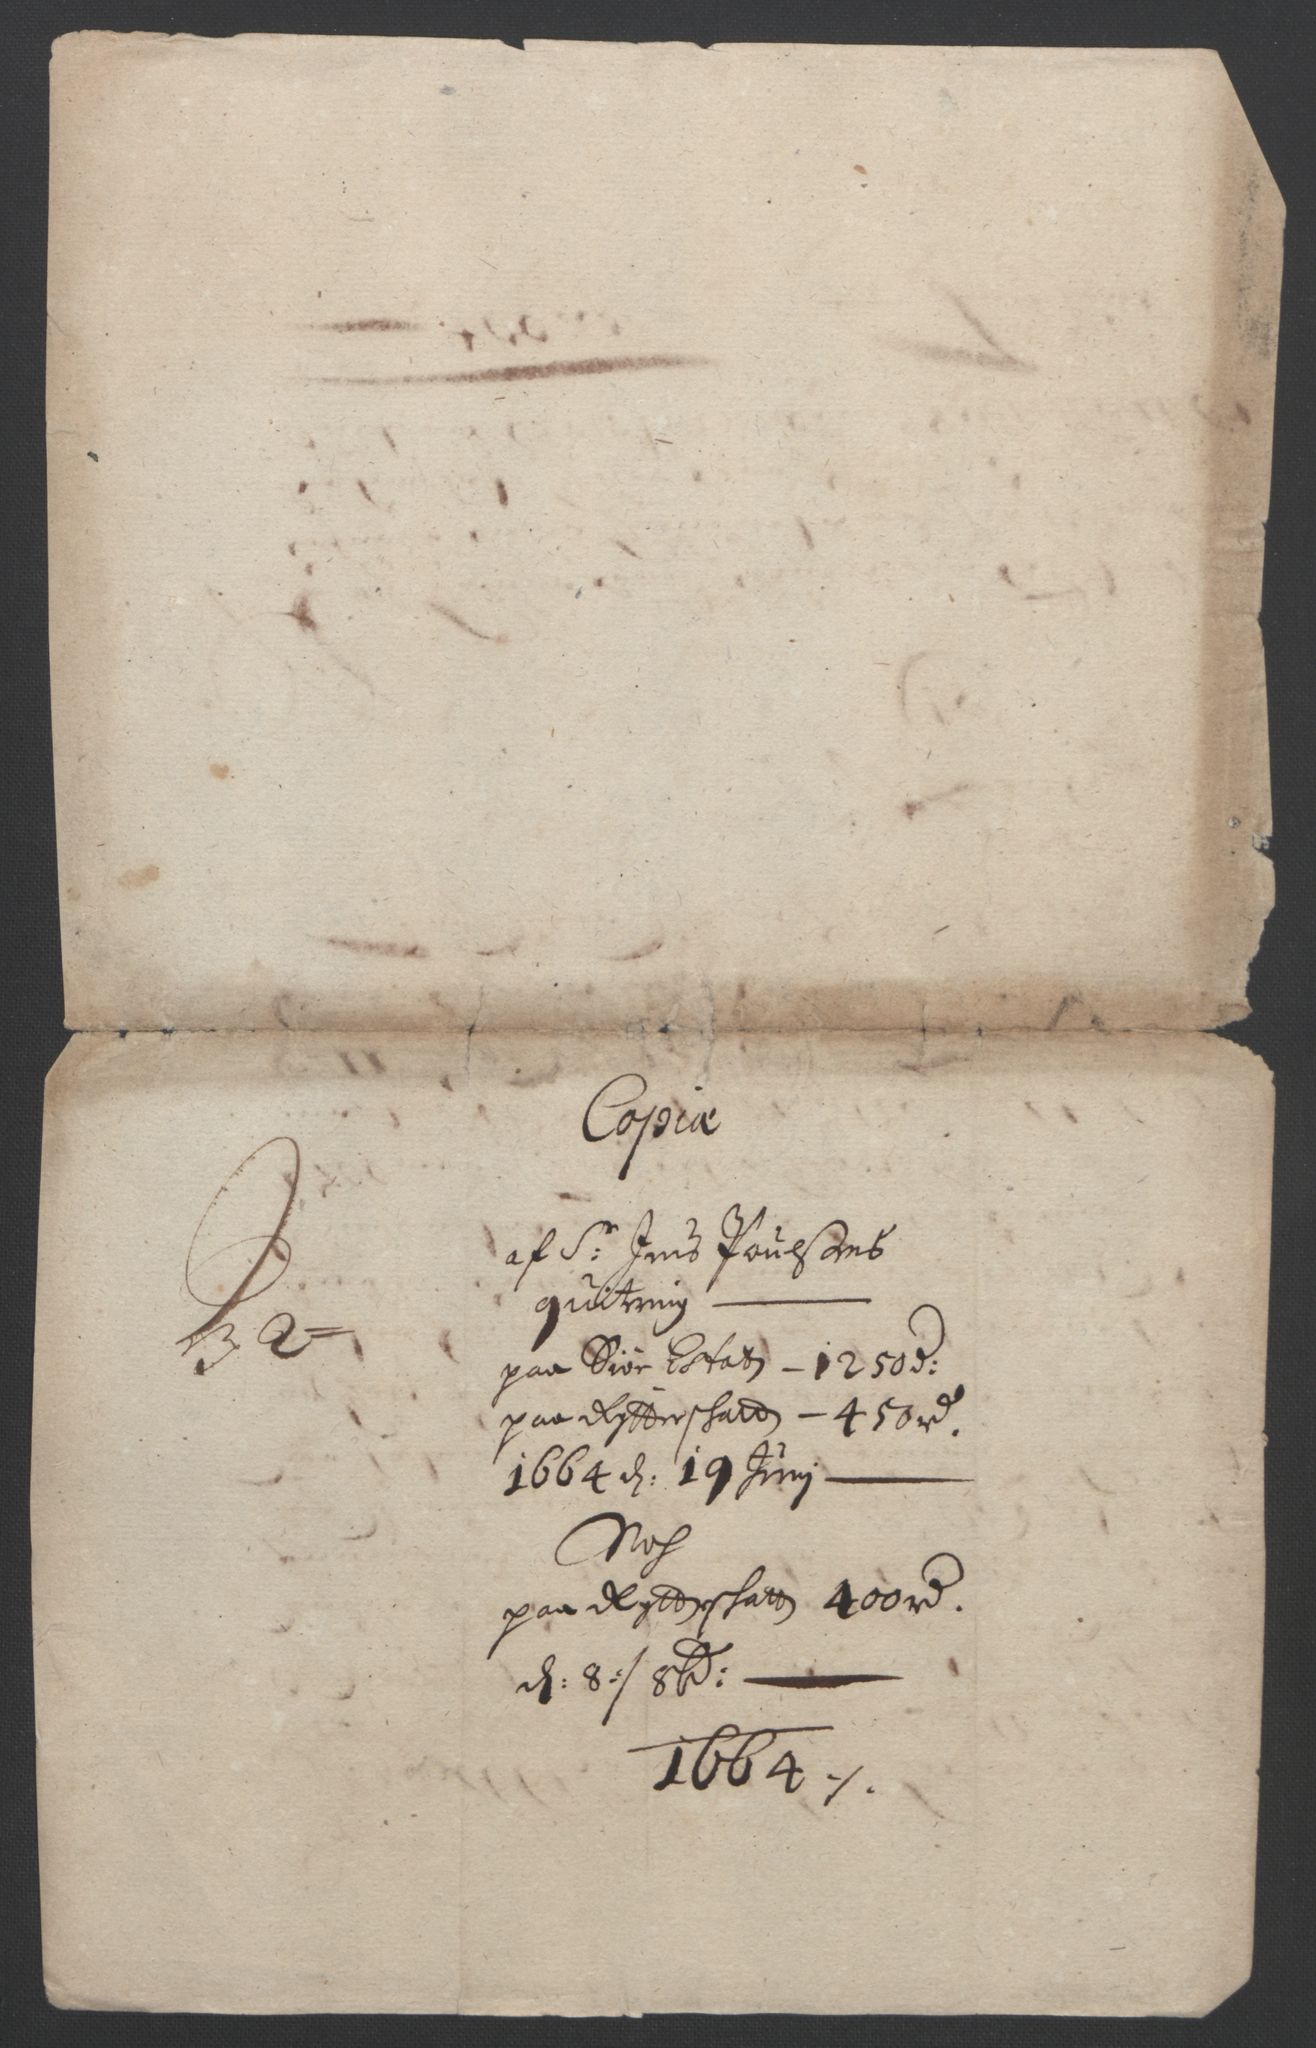 Copiæ
af Sr: Jens Poulsens
quitering
paa Siøe Estatz – 1250 d:
paa Rytterschatt – 450 rd.
1664 d: 19 Junij
Noch
paa Rytterschatt 400 rd.
d: 8:/ 8b:
1664 ./.